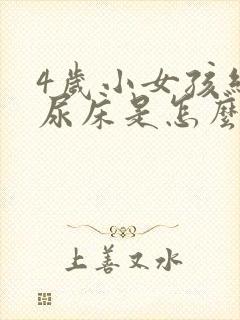 4歲小女孩經
尿床是怎麼
上善又水